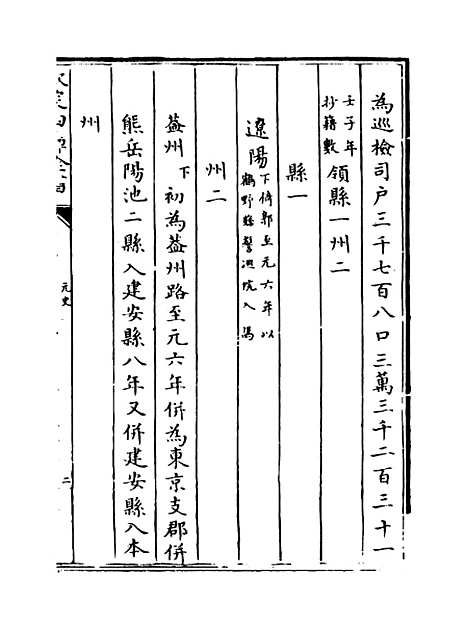 為巡檢司户三千七百八口三萬三千二百三十一
壬子年
抄籍數
領縣一州二
縣一
遼陽
下倚郭至元六年以
鶴野縣警巡院入焉
州二
葢州
下
初為葢州路至元六年併為東京支郡併
熊岳陽池二縣入建安縣八年又併建安縣入本
州
元史
二